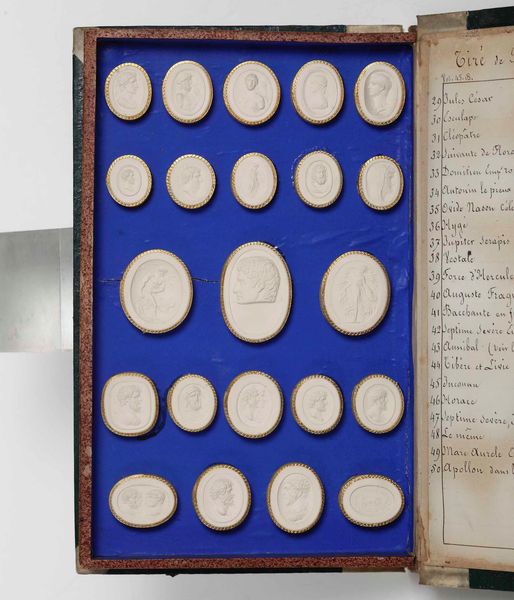 Tiré de
29 Jules César
30 Esculape
31 Cléopâtre
32 Suivante de
33 Domitien Emp.
34 Antonin le pieux
35 Ovide Nason
36 Hyge
37 Jupiter Serapis
38 Vestale
39 Force d'Hercule
40 Auguste Frag
41 Bacchante en
42 Septime Sevère
43 Annibal (voir l
44 Tibère et Livie
45 Inconnu
46 Horace
47 Septime Sevère,
48 Le même
49 Marc Aurele
50 Apollon dans